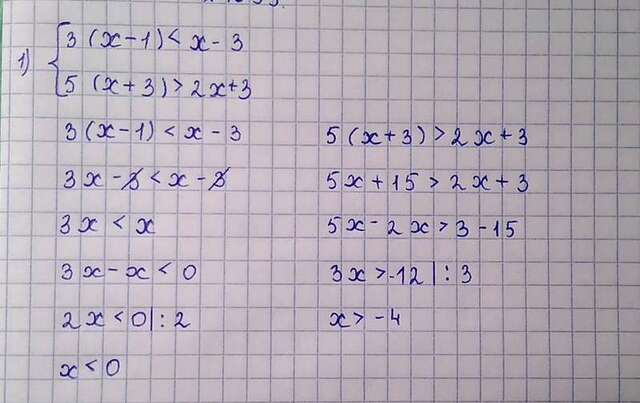 1) { 3 (x - 1) < x - 3
5 (x + 3) > 2x + 3
3 (x - 1) < x - 3
3x - 3 < x - 3
3x < x
3x - x < 0
2x < 0 | : 2
x < 0
5 (x + 3) > 2x + 3
5x + 15 > 2x + 3
5x - 2x > 3 - 15
3x > -12 | : 3
x > -4